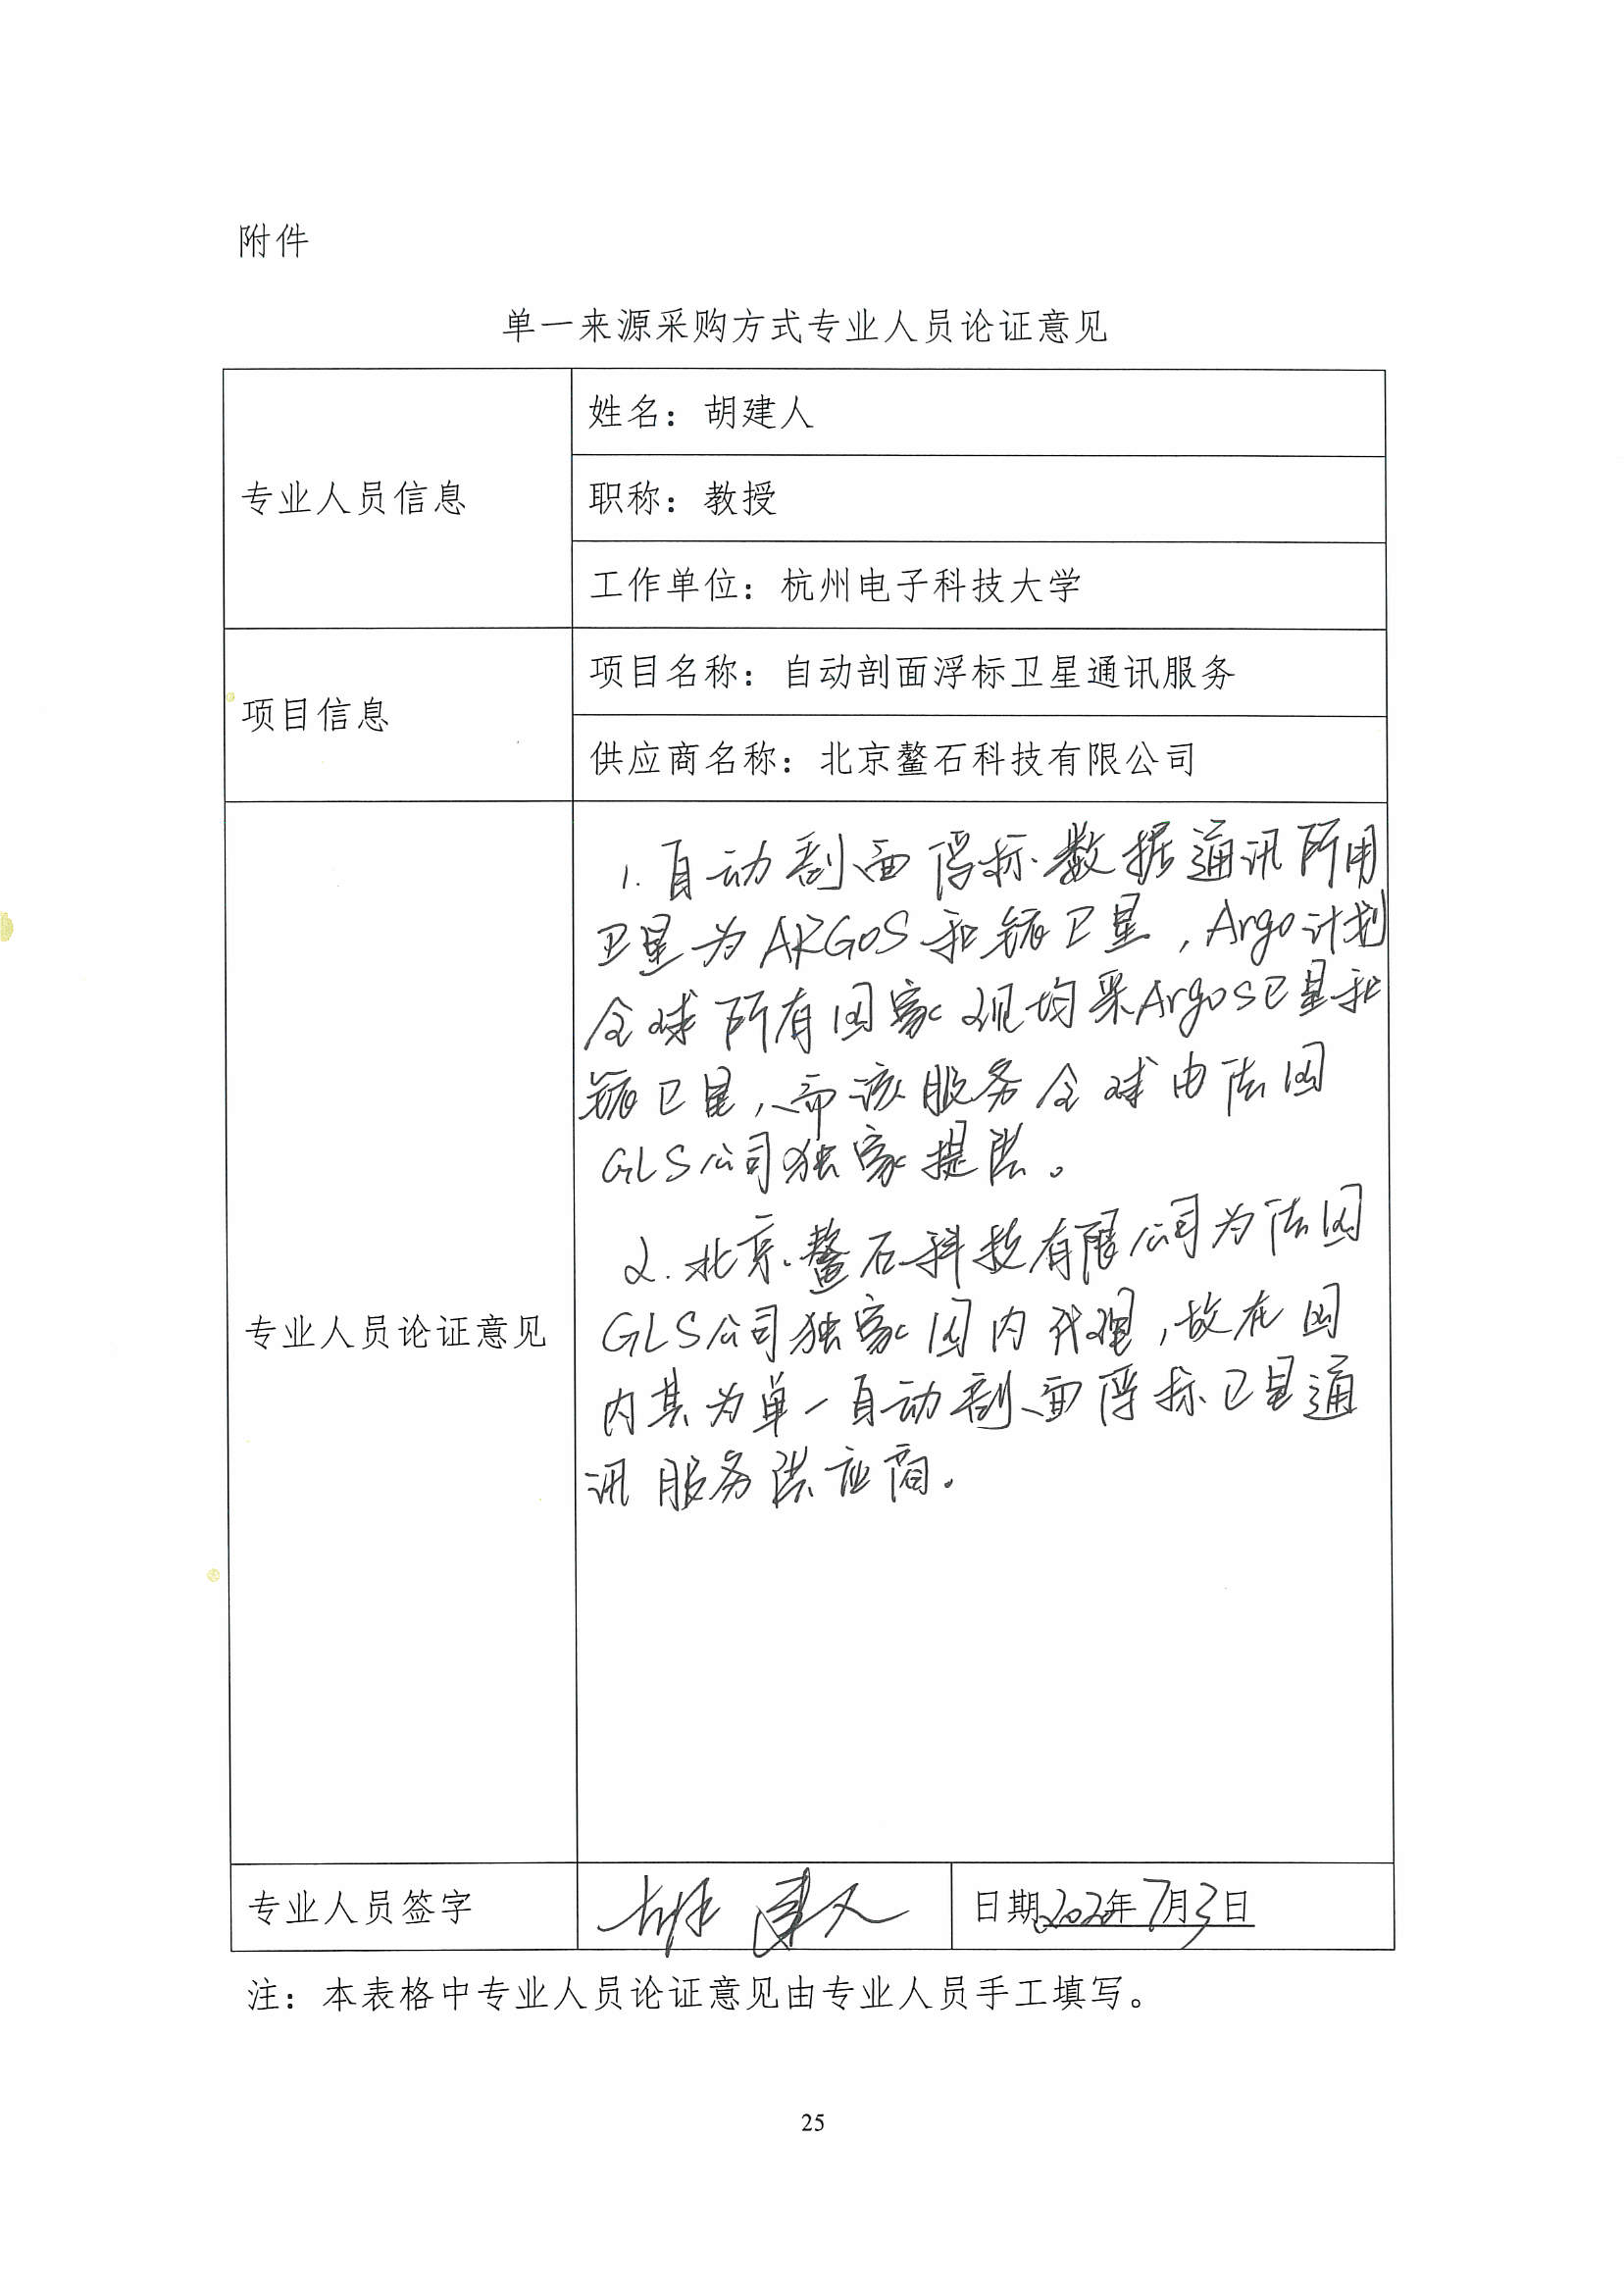 附件
单一来源采购方式专业人员论证意见
专业人员信息
姓名：胡建人
职称：教授
工作单位：杭州电子科技大学
项目信息
项目名称：自动剖面浮标卫星通讯服务
供应商名称：北京鳌石科技有限公司
专业人员论证意见
1.自动剖面浮标数据通讯所用
卫星为ARGOS和铱卫星，Argo计划
全球所有国家现均采Argos卫星和
铱卫星，而该服务全球由法国
GLS公司独家提供。
2.北京鳌石科技有限公司为法国
GLS公司独家国内代理，故在国
内其为单一自动剖面浮标卫星通
讯服务供应商。
专业人员签字
胡建人
日期2020年7月3日
注：本表格中专业人员论证意见由专业人员手工填写。
25